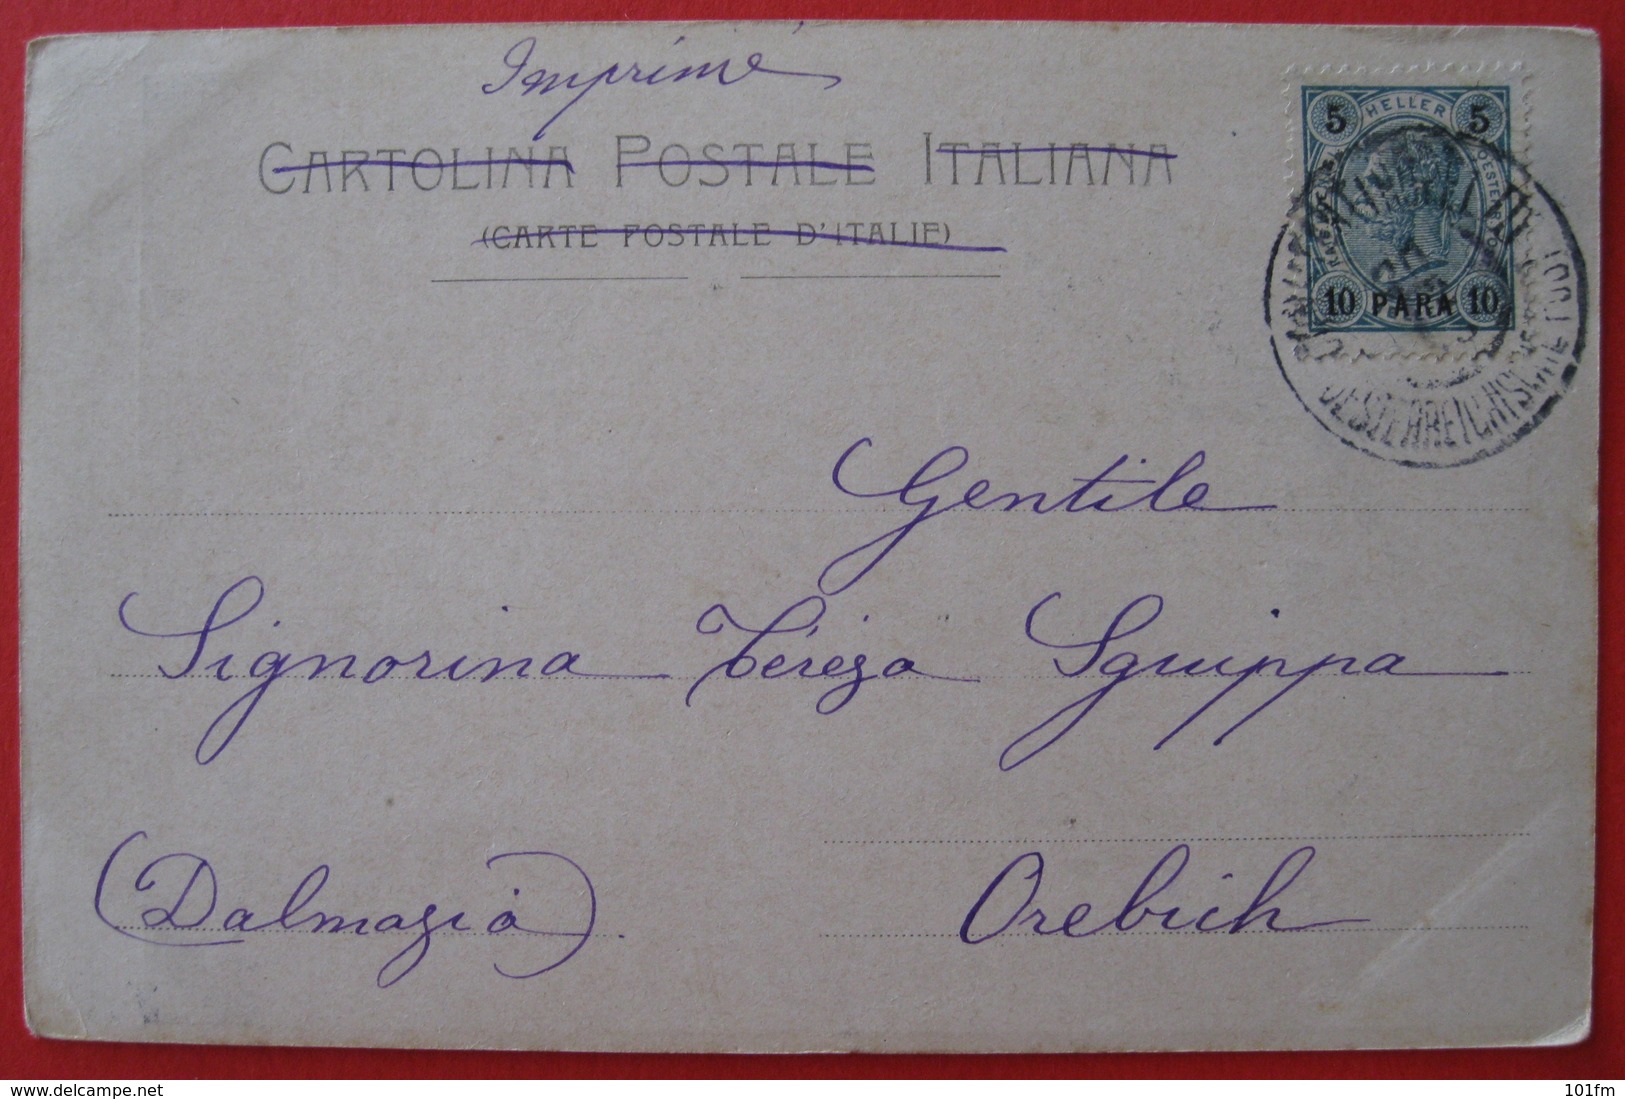 Imprimé
CARTOLINA POSTALE ITALIANA
(CARTE POSTALE D'ITALIE)
5 HELLER 5
10 PARA 10
OESTERREICHISCHE POST
Gentile
Signorina Téreza Sguippa
(Dalmazia)
Orebich
delcampe.net
101fm